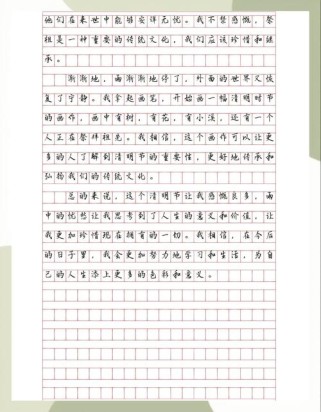 他们在来世中能够安详无忧。我不禁感慨，祭
祖是一种重要的传统文化，我们应该珍惜和继
承。
渐渐地，雨渐渐地停了，外面的世界又恢
复了宁静。我拿起画笔，开始画一幅清明时节
的画作，画中有树，有花，有小溪，还有一个
人正在祭拜祖先。我相信，这个画作可以让更
多的人了解到清明节的重要性，更好地传承和
弘扬我们的传统文化。
总的来说，这个清明节让我感慨良多，雨
中的忧愁让我思考到了人生的意义和价值，让
我更加珍惜现在拥有的一切。我相信，在今后
的日子里，我会更加努力地学习和生活，为自
己的人生添上更多的色彩和意义。